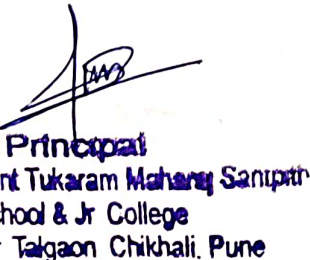 Principal
nt Tukaram Maharaj Santpith
chool & Jr College
Talgaon Chikhali, Pune